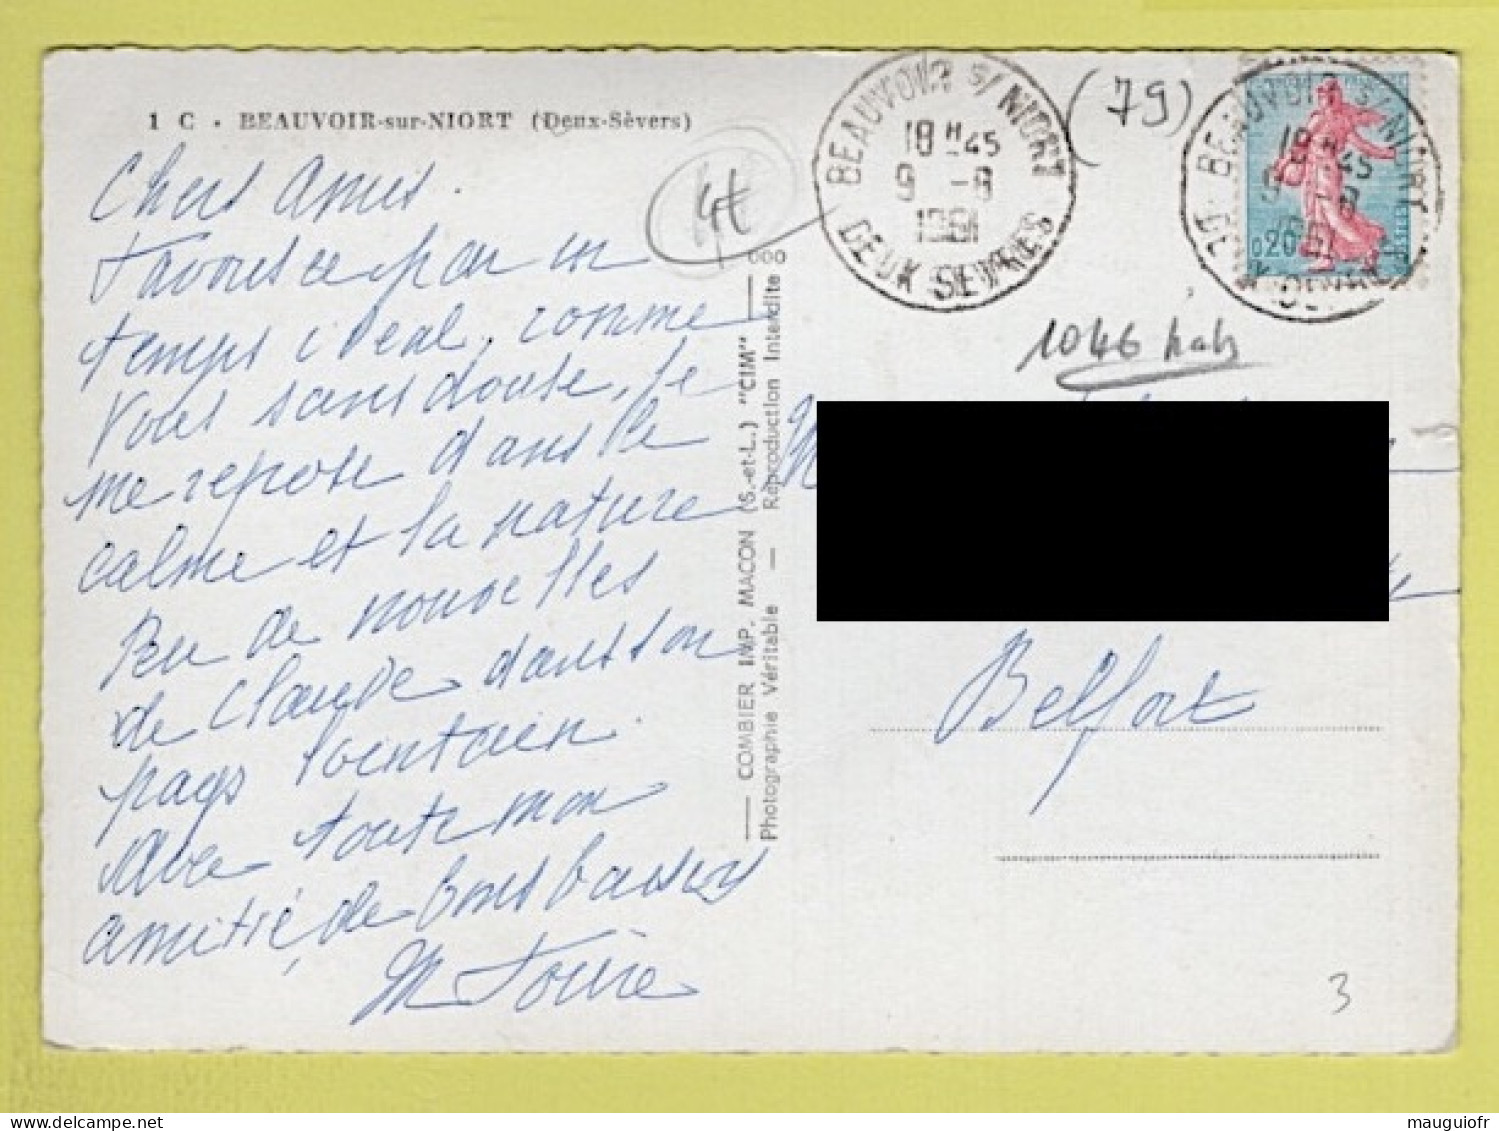 1 C - BEAUVOIR-sur-NIORT (Deux-Sèvers)
Chers Amis.
Favorisée par un
temps idéal, comme
Vous sans doute, je
me repose dans le
calme et la nature
Peu de nouvelles
de Claude dans son
pays lointain.
Avec toute mon
amitié, de bons baisers
M
4€
000
COMBIER IMP. MACON (S.-et-L.) "CIM"
Photographie Véritable — Reproduction Interdite
BEAUVOIR s/ NIORT
18 H 45
9 - 8
1961
DEUX SEVRES
(79)
BEAUVOIR s/ NIORT
18 H 45
0,20
1046 habts
M
Belfort
3
mauguiofr